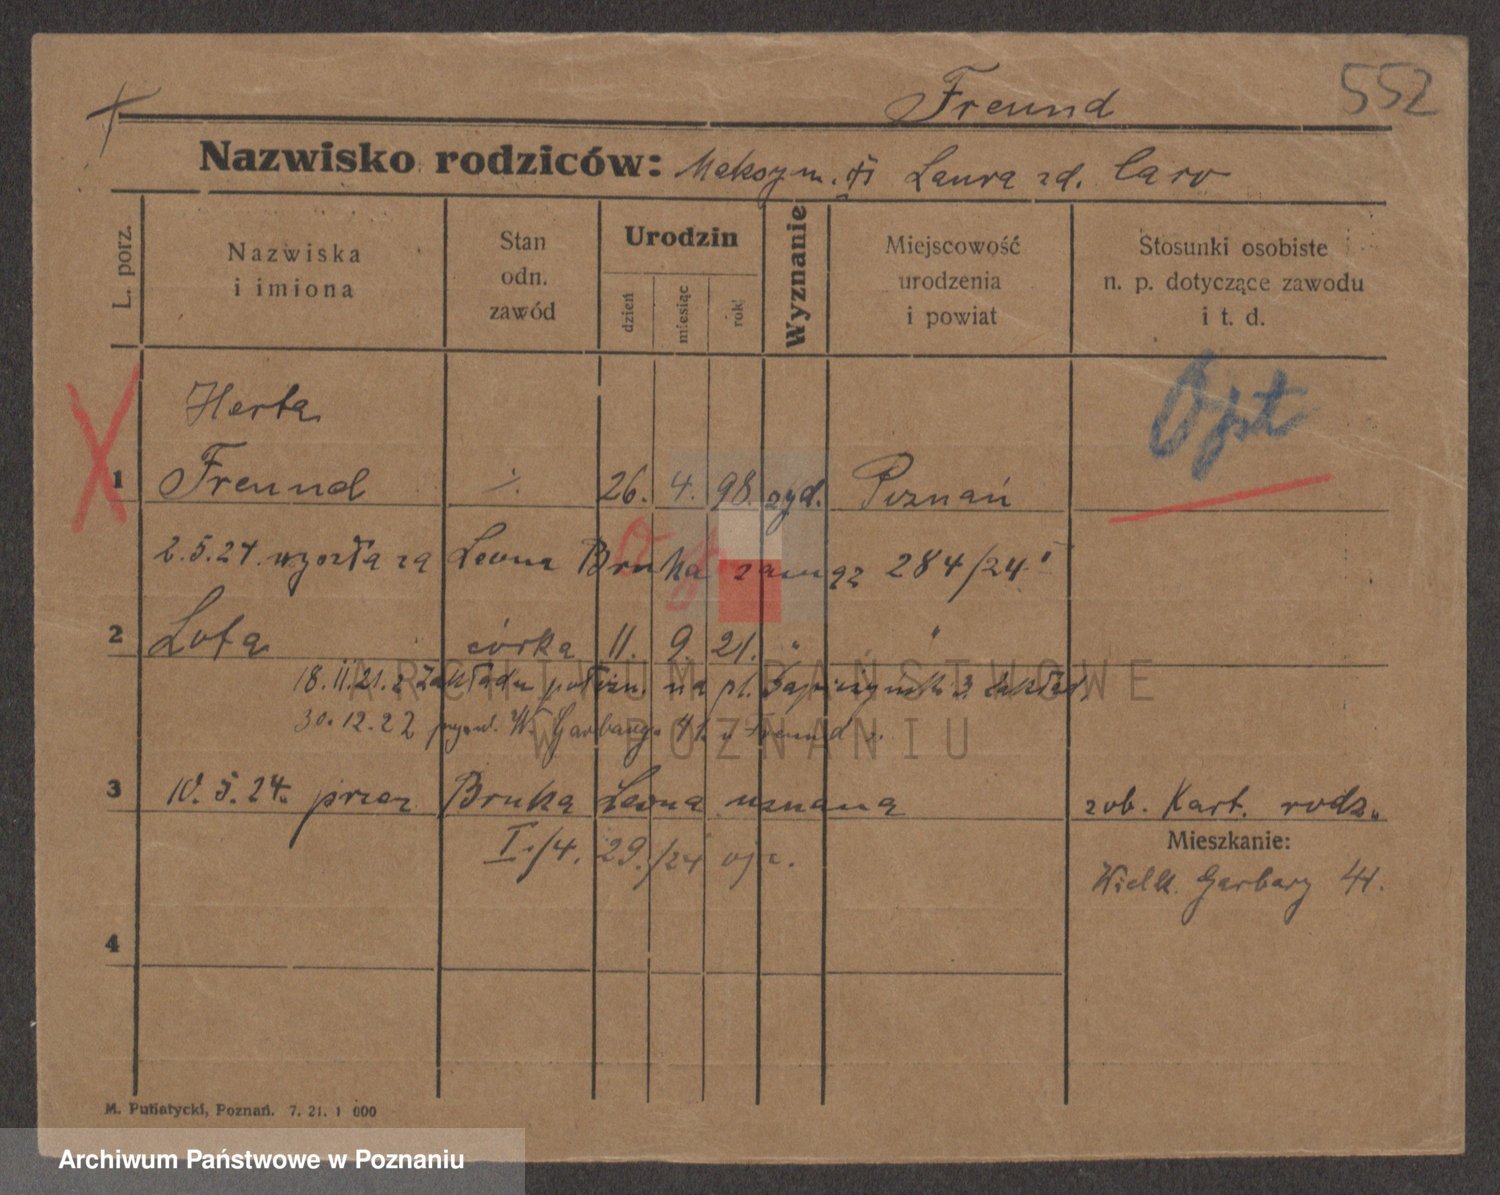 552
Freund
Nazwisko rodziców: Maksym. i Laura zd. Caro
L. porz.
Nazwiska i imiona
Stan odn. zawód
Urodzin
dzień
miesiąc
rok
Wyznanie
Miejscowość urodzenia i powiat
Stosunki osobiste n. p. dotyczące zawodu i t. d.
Herta
Opt
1 Freund ·/. 26. 4. 98. żyd. Poznań
2.5.24. wyszła za Leona Bruka 284/24
2 Lota córka 11. 9. 21. " "
18.11.21. z Zakładu położn. na pl.
30.12.22 W. Garbary 41. Freund
3 10.5.24. przez Bruka Leona uznana zob. Kart. rodz.
I./4. 29./24
Mieszkanie:
Wielk. Garbary 41.
4
M. Putiatycki, Poznań. 7. 21. 1 000
ARCHIWUM PAŃSTWOWE
W POZNANIU
Archiwum Państwowe w Poznaniu